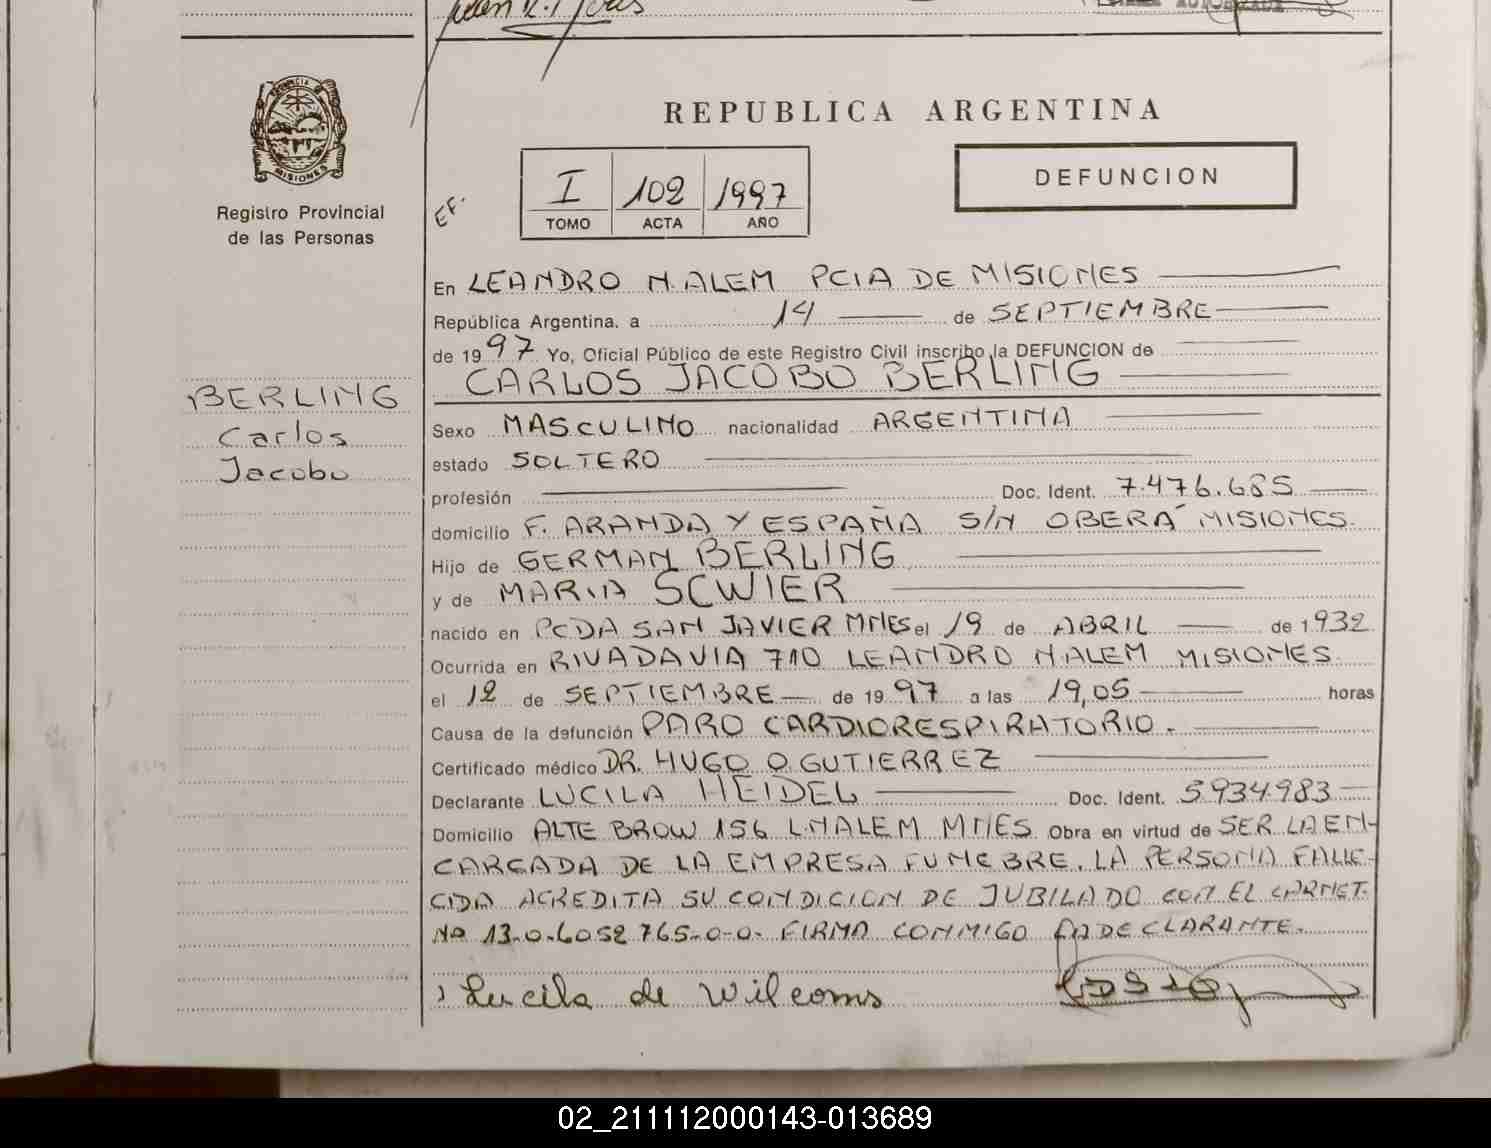 PROVINCIA DE
MISIONES
Registro Provincial
de las Personas
BERLING
Carlos
Jacobo
REPUBLICA ARGENTINA
EF.
I 102 1997
TOMO ACTA AÑO
DEFUNCION
En LEANDRO N. ALEM PCIA DE MISIONES
República Argentina, a 14 de SEPTIEMBRE
de 1997 Yo, Oficial Público de este Registro Civil inscribo la DEFUNCION de
CARLOS JACOBO BERLING
Sexo MASCULINO nacionalidad ARGENTINA
estado SOLTERO
profesión Doc. Ident. 7.476.685
domicilio F. ARANDA Y ESPAÑA S/N OBERÁ MISIONES.
Hijo de GERMAN BERLING
y de MARIA SCWIER
nacido en PCDA SAN JAVIER MNES el 19 de ABRIL de 1932
Ocurrida en RIVADAVIA 710 LEANDRO N. ALEM MISIONES.
el 12 de SEPTIEMBRE de 1997 a las 19,05 horas
Causa de la defunción PARO CARDIORESPIRATORIO.
Certificado médico DR. HUGO O. GUTIERREZ
Declarante LUCILA HEIDEL Doc. Ident. 5.934.983
Domicilio ALTE BROW 156 L.N.ALEM MNES Obra en virtud de SER LA EN-
CARGADA DE LA EMPRESA FUNEBRE. LA PERSONA FALLE-
CIDA ACREDITA SU CONDICION DE JUBILADO CON EL CARNET.
Nº 13-0-6052765-0-0. FIRMA CONMIGO LA DECLARANTE.
Lucila de Wilcoms
02_211112000143-013689